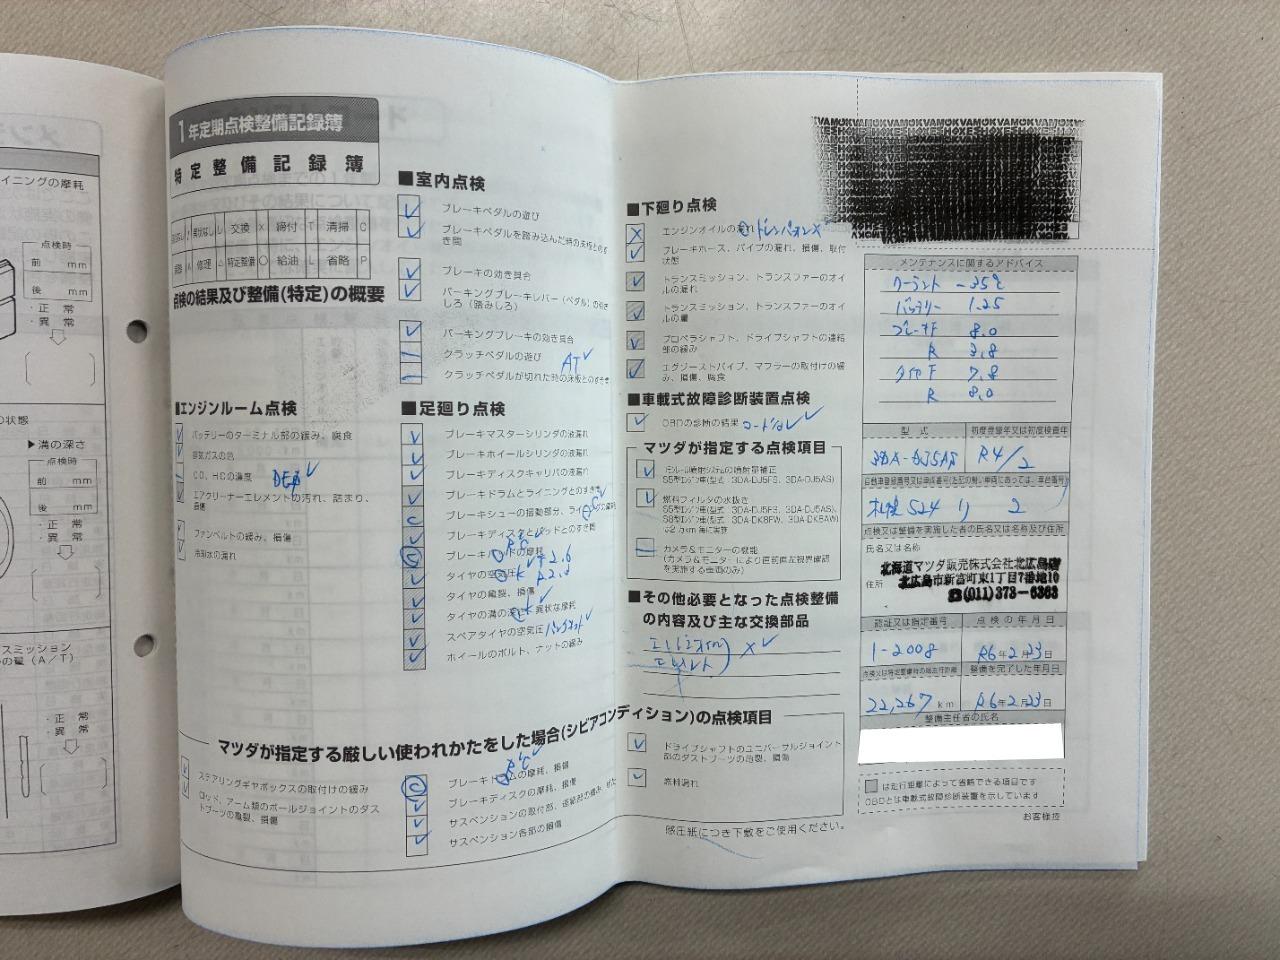 イニングの摩耗
点検時
前 mm
後 mm
・正 常
・異 常
の状態
▶溝の深さ
点検時
前 mm
後 mm
・正 常
・異 常
スミッション
の量(A/T)
・正 常
・異 常
1年定期点検整備記録簿
特定整備記録簿
交換 X 締付 T 清掃 C
A 修理 △ 特定整備 O 給油 L 省略 P
点検の結果及び整備(特定)の概要
■エンジンルーム点検
バッテリーのターミナル部の緩み、腐食
排気ガスの色
CO、HCの濃度
エアクリーナーエレメントの汚れ、詰まり、損傷
ファンベルトの緩み、損傷
冷却水の漏れ
■室内点検
ブレーキペダルの遊び
ブレーキペダルを踏み込んだ時の床板とのすき間
ブレーキの効き具合
パーキングブレーキレバー(ペダル)の引きしろ(踏みしろ)
パーキングブレーキの効き具合
クラッチペダルの遊び AT
クラッチペダルが切れた時の床板とのすき間
■足廻り点検
ブレーキマスターシリンダの液漏れ
ブレーキホイールシリンダの液漏れ
ブレーキディスクキャリパの液漏れ
ブレーキドラムとライニングとのすき間
ブレーキシューの摺動部分、ライニングの摩耗
ブレーキディスクとパッドとのすき間
ブレーキパッドの摩耗
タイヤの空気圧
タイヤの亀裂、損傷
タイヤの溝の深さ、異状な摩耗
スペアタイヤの空気圧 パンクキット
ホイールのボルト、ナットの緩み
マツダが指定する厳しい使われかたをした場合(シビアコンディション)の点検項目
ステアリングギヤボックスの取付けの緩み
ロッド、アーム類のボールジョイントのダストブーツの亀裂、損傷
ブレーキドラムの摩耗、損傷
ブレーキディスクの摩耗、損傷
サスペンションの取付部、連結部の緩み、がた
サスペンション各部の損傷
ドライブシャフトのユニバーサルジョイント部のダストブーツの亀裂、損傷
燃料漏れ
■下廻り点検
エンジンオイルの漏れ
ブレーキホース、パイプの漏れ、損傷、取付状態
トランスミッション、トランスファーのオイルの漏れ
トランスミッション、トランスファーのオイルの量
プロペラシャフト、ドライブシャフトの連結部の緩み
エグゾーストパイプ、マフラーの取付けの緩み、損傷、腐食
■車載式故障診断装置点検
OBDの診断の結果
マツダが指定する点検項目
コモンレール噴射システムの噴射量補正
S5型エンジン車(型式:3DA-DJ5FS、3DA-DJ5AS)
燃料フィルタの水抜き
S5型エンジン車(型式:3DA-DJ5FS、3DA-DJ5AS)、
S8型エンジン車(型式:3DA-DK8FW、3DA-DK8AW)
は2万km毎に実施
カメラ&モニターの機能
(カメラ&モニターにより直前直左視界確認を実施する車両のみ)
■その他必要となった点検整備の内容及び主な交換部品
エンジンオイル
エレメント X
感圧紙につき下敷をご使用ください。
メンテナンスに関するアドバイス
クーラント -35℃
バッテリー 1.25
ブレーキF 8.0
R 3.8
タイヤF 7.8
R 8.0
型式 初度登録年又は初度検査年
3DA-DJ5AS R4/2
札幌 524 り 2
点検又は整備を実施した者の氏名又は名称及び住所
氏名又は名称
北海道マツダ販売株式会社北広島店
住所 北広島市新富町東1丁目7番地10
☎(011)373-6363
認証又は指定番号 点検の年月日
1-2008 R6年2月23日
点検又は特定整備時の総走行距離 整備を完了した年月日
22,267 km R6年2月23日
整備主任者の氏名
は走行距離によって省略できる項目です
OBDとは車載式故障診断装置を示しています
お客様控